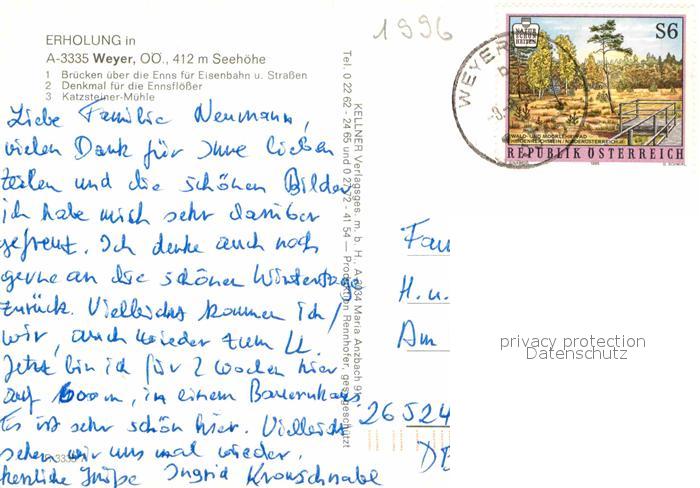 1996
ERHOLUNG in
A-3335 Weyer, OÖ., 412 m Seehöhe
1 Brücken über die Enns für Eisenbahn u. Straßen
2 Denkmal für die Ennsflößer
3 Katzsteiner-Mühle
Liebe Familie Neumann,
vielen Dank für Ihre lieben
Zeilen und die schönen Bilder,
ich habe mich sehr darüber
gefreut. Ich denke auch noch
gerne an die schönen Wintertage
zurück. Vielleicht kommen ich/
wir, auch wieder zum
Jetzt bin ich für 2 Wochen hier
auf 600m, in einem Bauernhaus.
Es ist sehr schön hier. Vielleicht
sehen wir uns mal wieder.
herzliche Grüße Ingrid Kronschnabl
KELLNER Verlagsges. m. b. H., A-3034 Maria Anzbach
Tel. 0 22 62 - 24 65 und 0 27 72 - 41 54 — Produktion Rennhofer, ges. geschützt
WEYER
S6
NATUR
SCHÖN
HEITEN
WALD- UND MOORLEHRPFAD
HEIDENREICHSTEIN / NIEDERÖSTERREICH
REPUBLIK ÖSTERREICH
Fam
H. u.
Am
26524
DE
privacy protection
Datenschutz